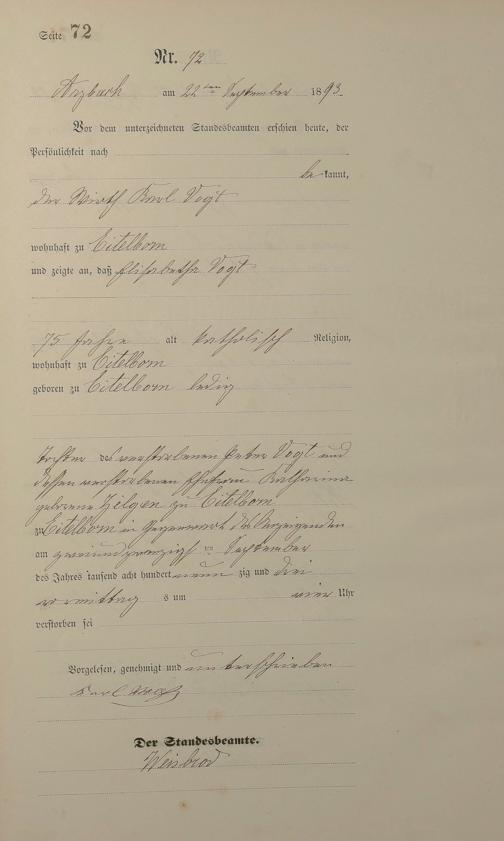 Seite 72
Nr. 72
Arzbach am 22ten September 1893
Vor dem unterzeichneten Standesbeamten erschien heute, der
Persönlichkeit nach
be kannt,
der Wirth Karl Vogt
wohnhaft zu Eitelborn
und zeigte an, daß Elisabetha Vogt
75 Jahre alt katholisch Religion,
wohnhaft zu Eitelborn
geboren zu Eitelborn ledig
Tochter des verstorbenen Peter Vogt und
dessen verstorbenen Ehefrau Katharina
geborene Hilgen zu Eitelborn
zu Eitelborn in Gegenwart des Anzeigenden
am zweiundzwanzigsten September
des Jahres tausend acht hundert neun zig und drei
vormittag s um vier Uhr
verstorben sei
Vorgelesen, genehmigt und unterschrieben
Karl Vogt
Der Standesbeamte.
Weisbrod